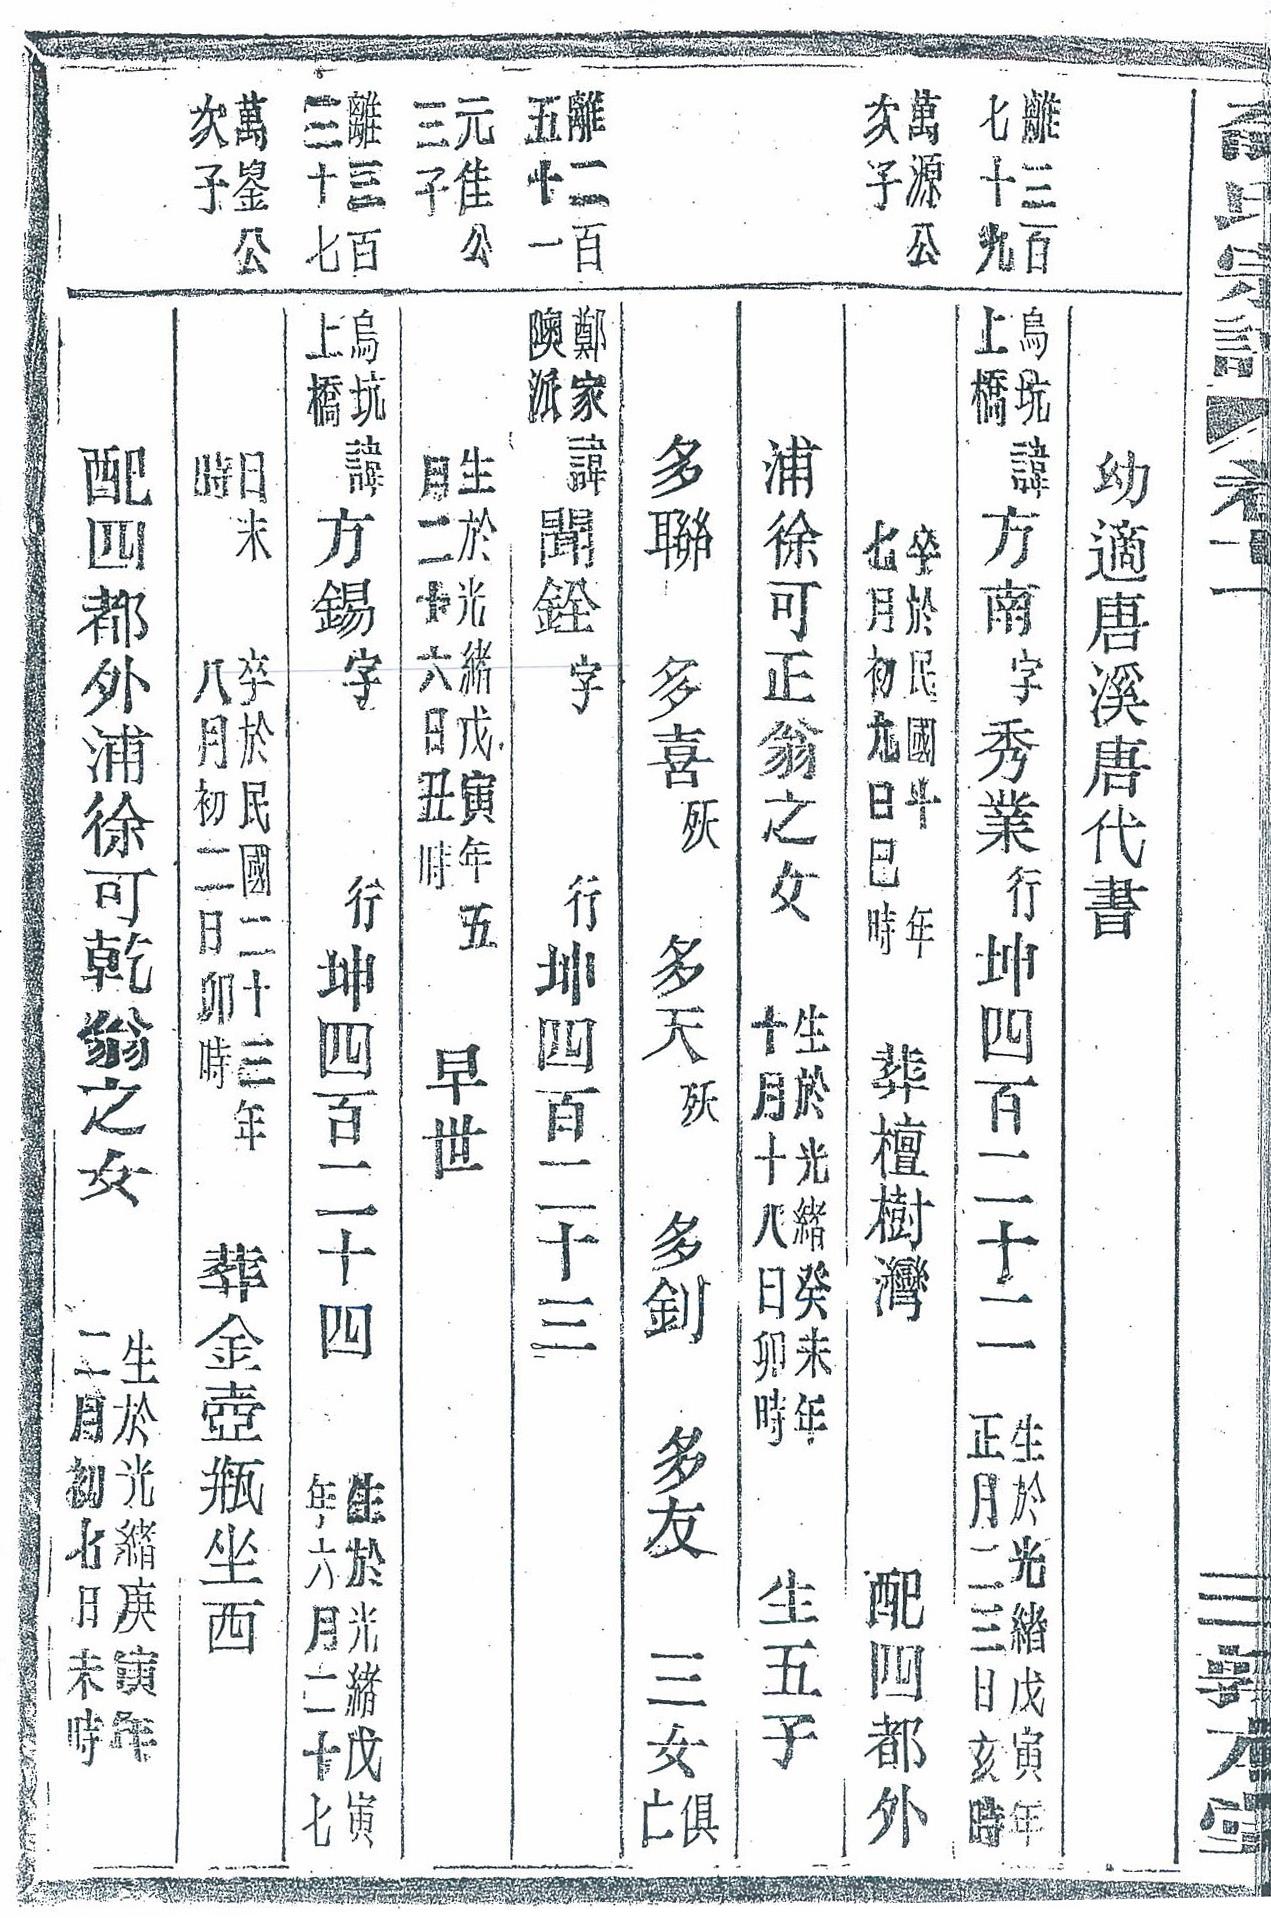 氏宗譜 卷十一
幼適唐溪唐代書
離三百七十九
烏坑上橋 諱方南 字秀業 行坤四百二十二 生於光緒戊寅年正月二三日亥時
萬源公次子
卒於民國 年七月初九日巳時 葬檀樹灣 配四都外
浦徐可正翁之女 生於光緒癸未年十月十八日卯時 生五子
多聯 多喜殀 多天殀 多釗 多友 三女俱亡
離二百五十一
鄭家隩派 諱聞銓 字 行坤四百二十三
元佳公三子
生於光緒戊寅年五月二十六日丑時 早世
離三百三十七
烏坑上橋 諱方錫 字 行坤四百二十四 生於光緒戊寅年六月二十七
萬鋆公次子
日未時 卒於民國二十三年八月初二日卯時 葬金壺瓶坐西
配四都外浦徐可乾翁之女 生於光緒庚寅年二月初七日未時